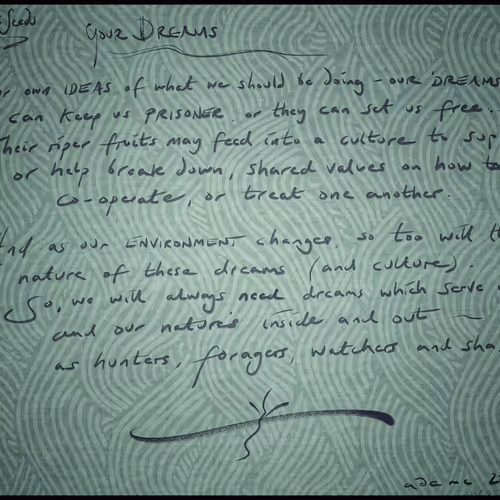 Seeds
Your Dreams
own IDEAS of what we should be doing - our DREAMS
can keep us PRISONER, or they can set us free.
Their riper fruits may feed into a culture to
or help break down, shared values on how to
co-operate, or treat one another.
And as our ENVIRONMENT changes, so too will
nature of these dreams (and culture).
So, we will always need dreams which serve
and our natures inside and out —
as hunters, foragers, watchers and